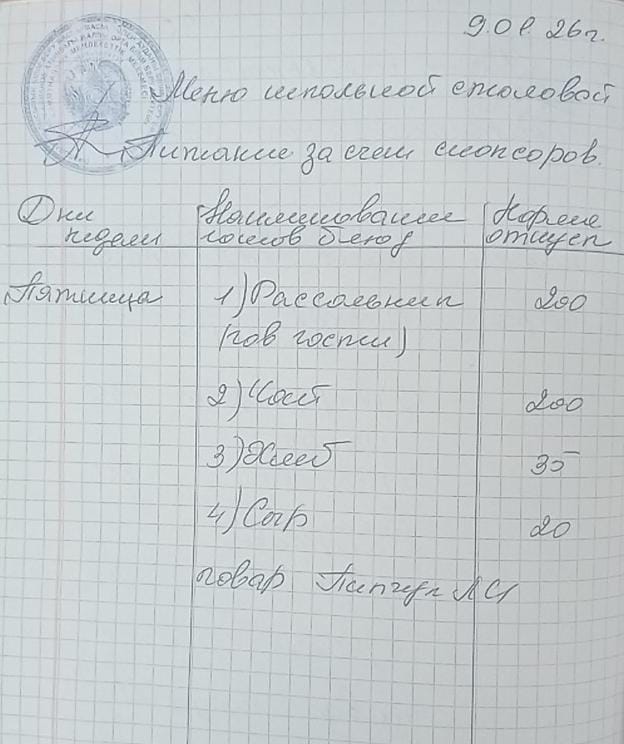 9.01 26г.
Меню школьной столовой
Питание за счет спонсоров.
Дни недели
Наименование готов блюд
Норма отпуск
Пятница
1) Рассольник 200
(гов кости)
2) Чай 200
3) Хлеб 35
4) Сыр 20
повар